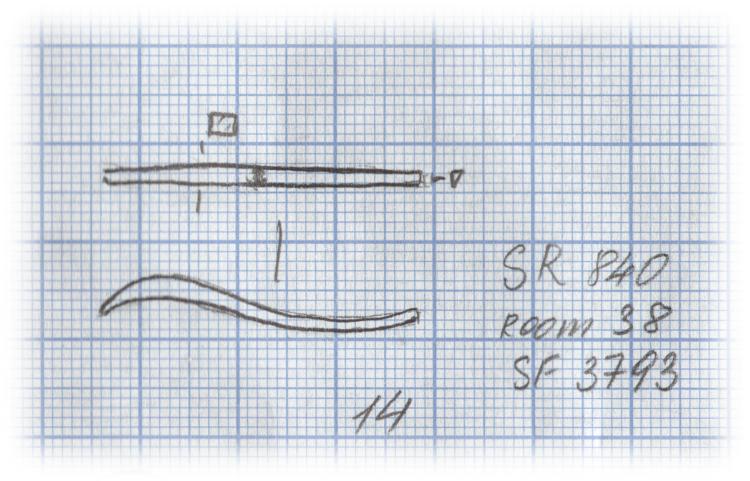 SR 840
ROOM 38
SF 3793
14